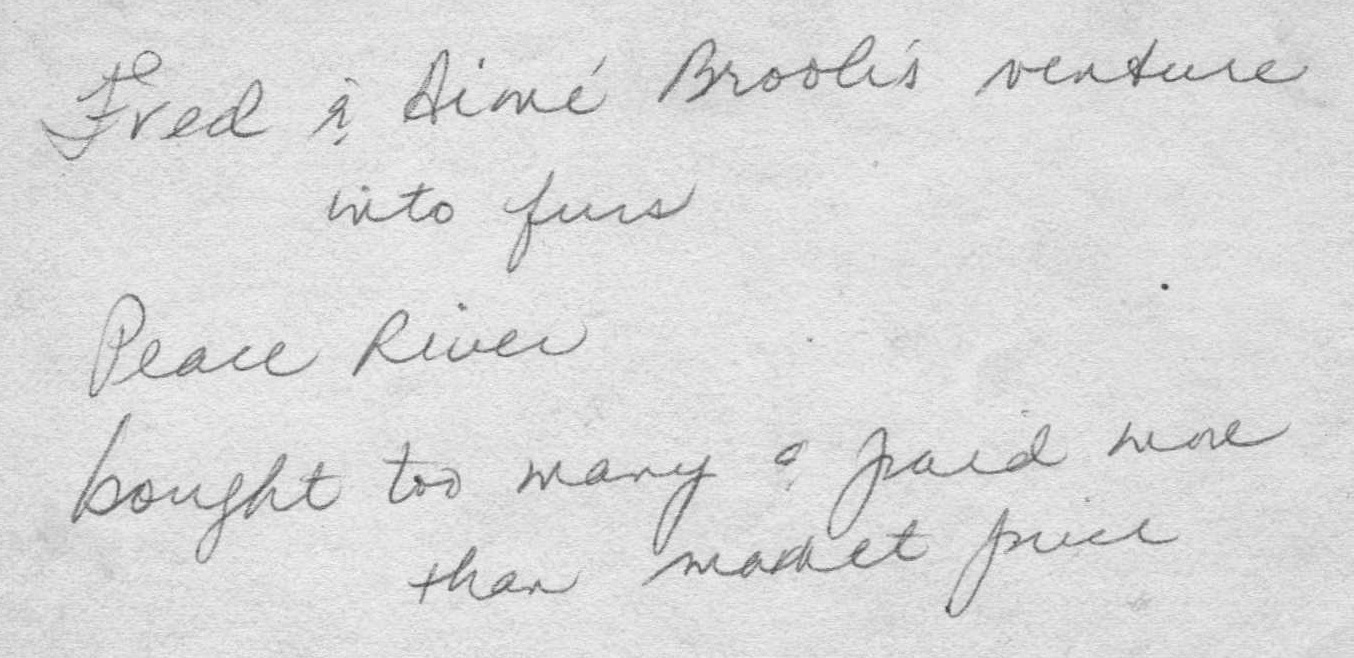 Fred & Aimé Brook's venture
into furs
Peace River
bought too many & paid more
than market price